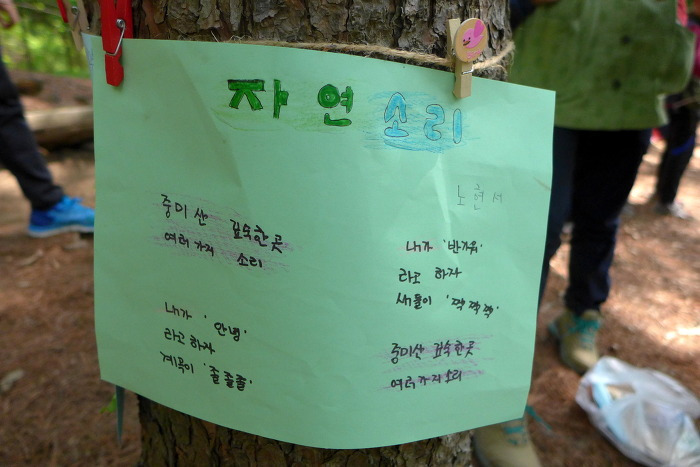 자연소리
노현서
중미산 깊숙한곳
여러가지 소리
내가 '안녕'
라고하자
계곡이 '졸졸졸'
내가 '반가워'
라고 하자
새들이 '짹짹짹'
중미산 깊숙한곳
여러가지소리